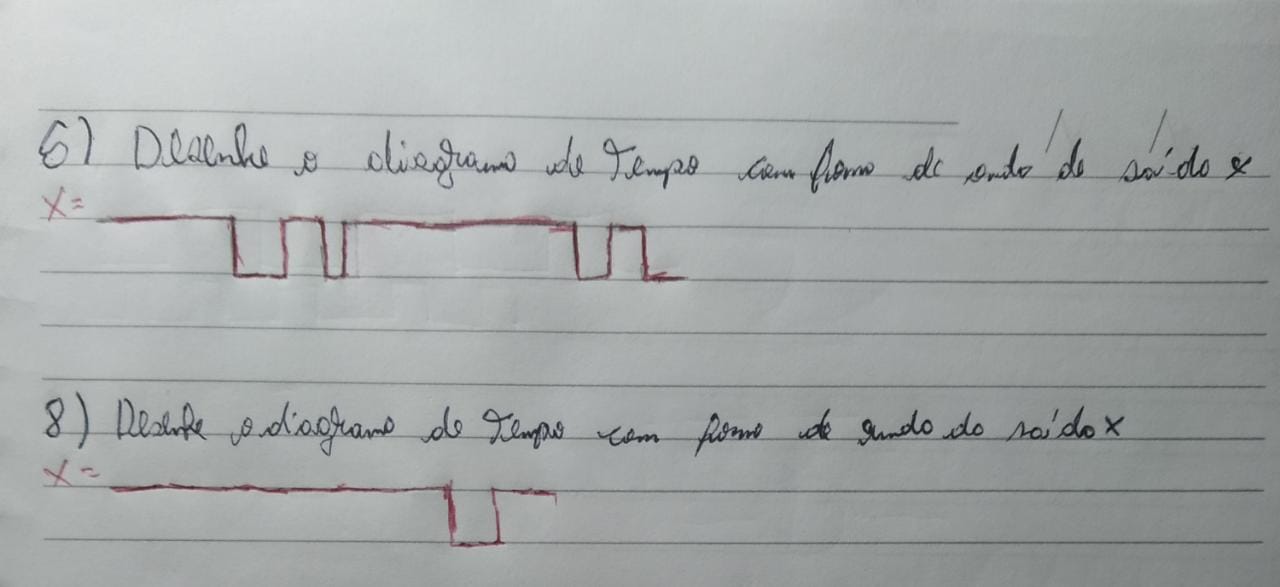 6) Desenhe o diagrama de Tempo com forma de onda da saída x
X =
8) Desenhe o diagrama de Tempo com forma de onda da saída x
X =